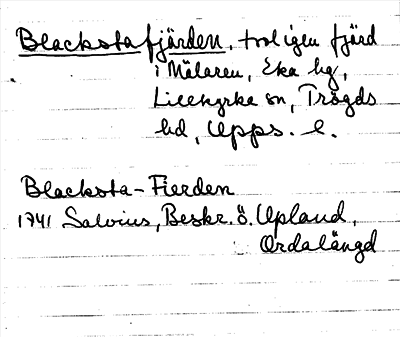 Blackstafjärden, troligen fjärd
i Mälaren, Eka hg,
Lillkyrka sn, Trögds
hd, Upps. l.
Blacksta-Fierden
1741 Salvius, Beskr. ö. Upland,
Ordalängd